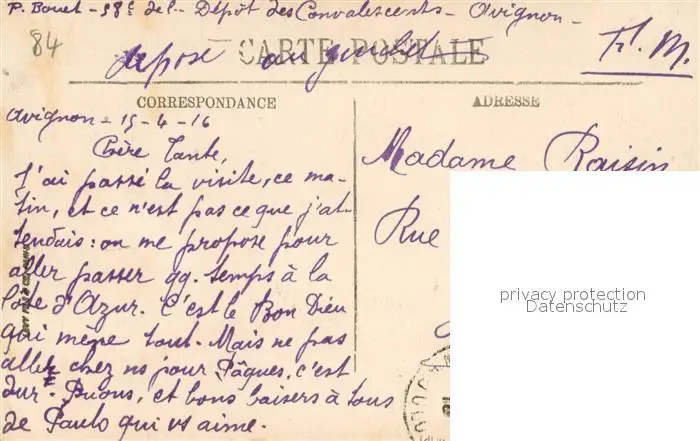 P. Bouet - 58e de l. - Dépôt des Convalescents - Avignon -
84
CARTE POSTALE
F. M.
CORRESPONDANCE
ADRESSE
Avignon - 15-4-16
Chère Tante,
J'ai passé la visite, ce ma-
tin, et ce n'est pas ce que j'at-
tendais : on me propose pour
aller passer qq. temps à la
Côte d'Azur. C'est le Bon Dieu
qui mène tout. Mais ne pas
aller chez ns pour Pâques, c'est
dur. Prions, et bons baisers à tous
de Paulo qui vs aime.
Madame Raisin
Rue
privacy protection
Datenschutz